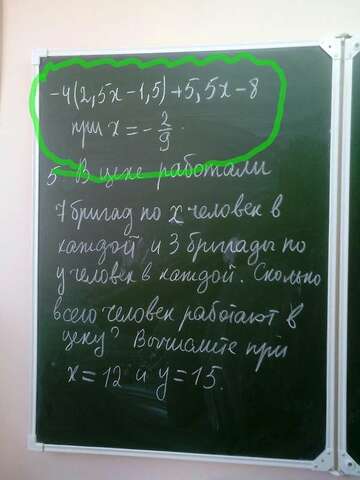 -4(2,5x-1,5)+5,5x-8
при x = -2/9.
5 В цехе работали
7 бригад по x человек в
каждой и 3 бригады по
y человек в каждой. Сколько
всего человек работают в
цеху? Вычислите при
x=12 и y=15.